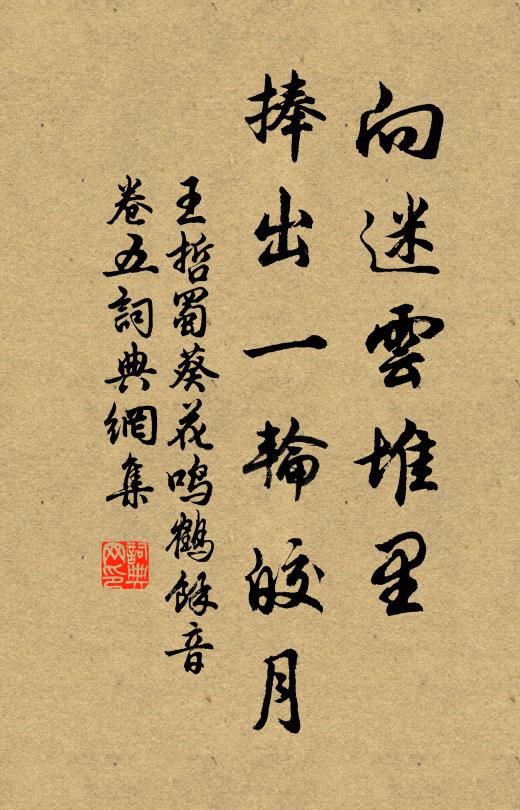 向迷雲堆里
捧出一輪皎月
王哲蜀葵花鳴鶴餘音
卷五詞典網集
詞典网印